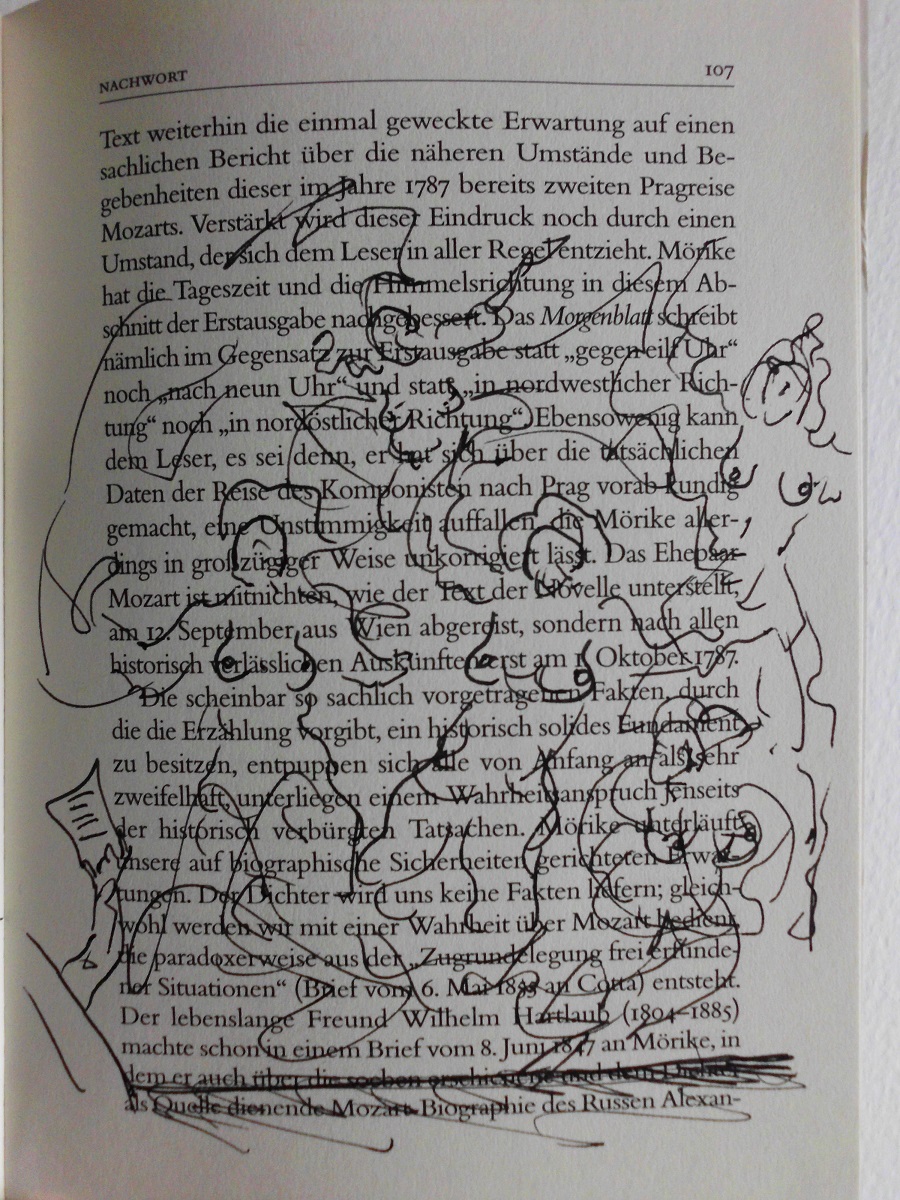 NACHWORT 107
Text weiterhin die einmal geweckte Erwartung auf einen
sachlichen Bericht über die näheren Umstände und Be-
gebenheiten dieser im Jahre 1787 bereits zweiten Pragreise
Mozarts. Verstärkt wird dieser Eindruck noch durch einen
Umstand, der sich dem Leser in aller Regel entzieht. Mörike
hat die Tageszeit und die Himmelsrichtung in diesem Ab-
schnitt der Erstausgabe nachgebessert. Das Morgenblatt schreibt
nämlich im Gegensatz zur Erstausgabe statt „gegen eilf Uhr“
noch „nach neun Uhr“ und statt „in nordwestlicher Rich-
tung“ noch „in nordöstlicher Richtung“. Ebensowenig kann
dem Leser, es sei denn, er hat sich über die tatsächlichen
Daten der Reise des Komponisten nach Prag vorab kundig
gemacht, eine Unstimmigkeit auffallen, die Mörike aller-
dings in großzügiger Weise unkorrigiert lässt. Das Ehepaar
Mozart ist mitnichten, wie der Text der Novelle unterstellt,
am 12. September aus Wien abgereist, sondern nach allen
historisch verlässlichen Auskünften erst am 1. Oktober 1787.
Die scheinbar so sachlich vorgetragenen Fakten, durch
die die Erzählung vorgibt, ein historisch solides Fundament
zu besitzen, entpuppen sich alle von Anfang an als sehr
zweifelhaft, unterliegen einem Wahrheitsanspruch jenseits
der historisch verbürgten Tatsachen. Mörike unterläuft
unsere auf biographische Sicherheiten gerichteten Erwar-
tungen. Der Dichter wird uns keine Fakten liefern; gleich-
wohl werden wir mit einer Wahrheit über Mozart bedient,
die paradoxerweise aus der „Zugrundelegung frei erfunde-
ner Situationen“ (Brief vom 6. Mai 1855 an Cotta) entsteht.
Der lebenslange Freund Wilhelm Hartlaub (1804–1885)
machte schon in einem Brief vom 8. Juni 1847 an Mörike, in
dem er auch über die soeben erschienene und dem Dichter
als Quelle dienende Mozart-Biographie des Russen Alexan-